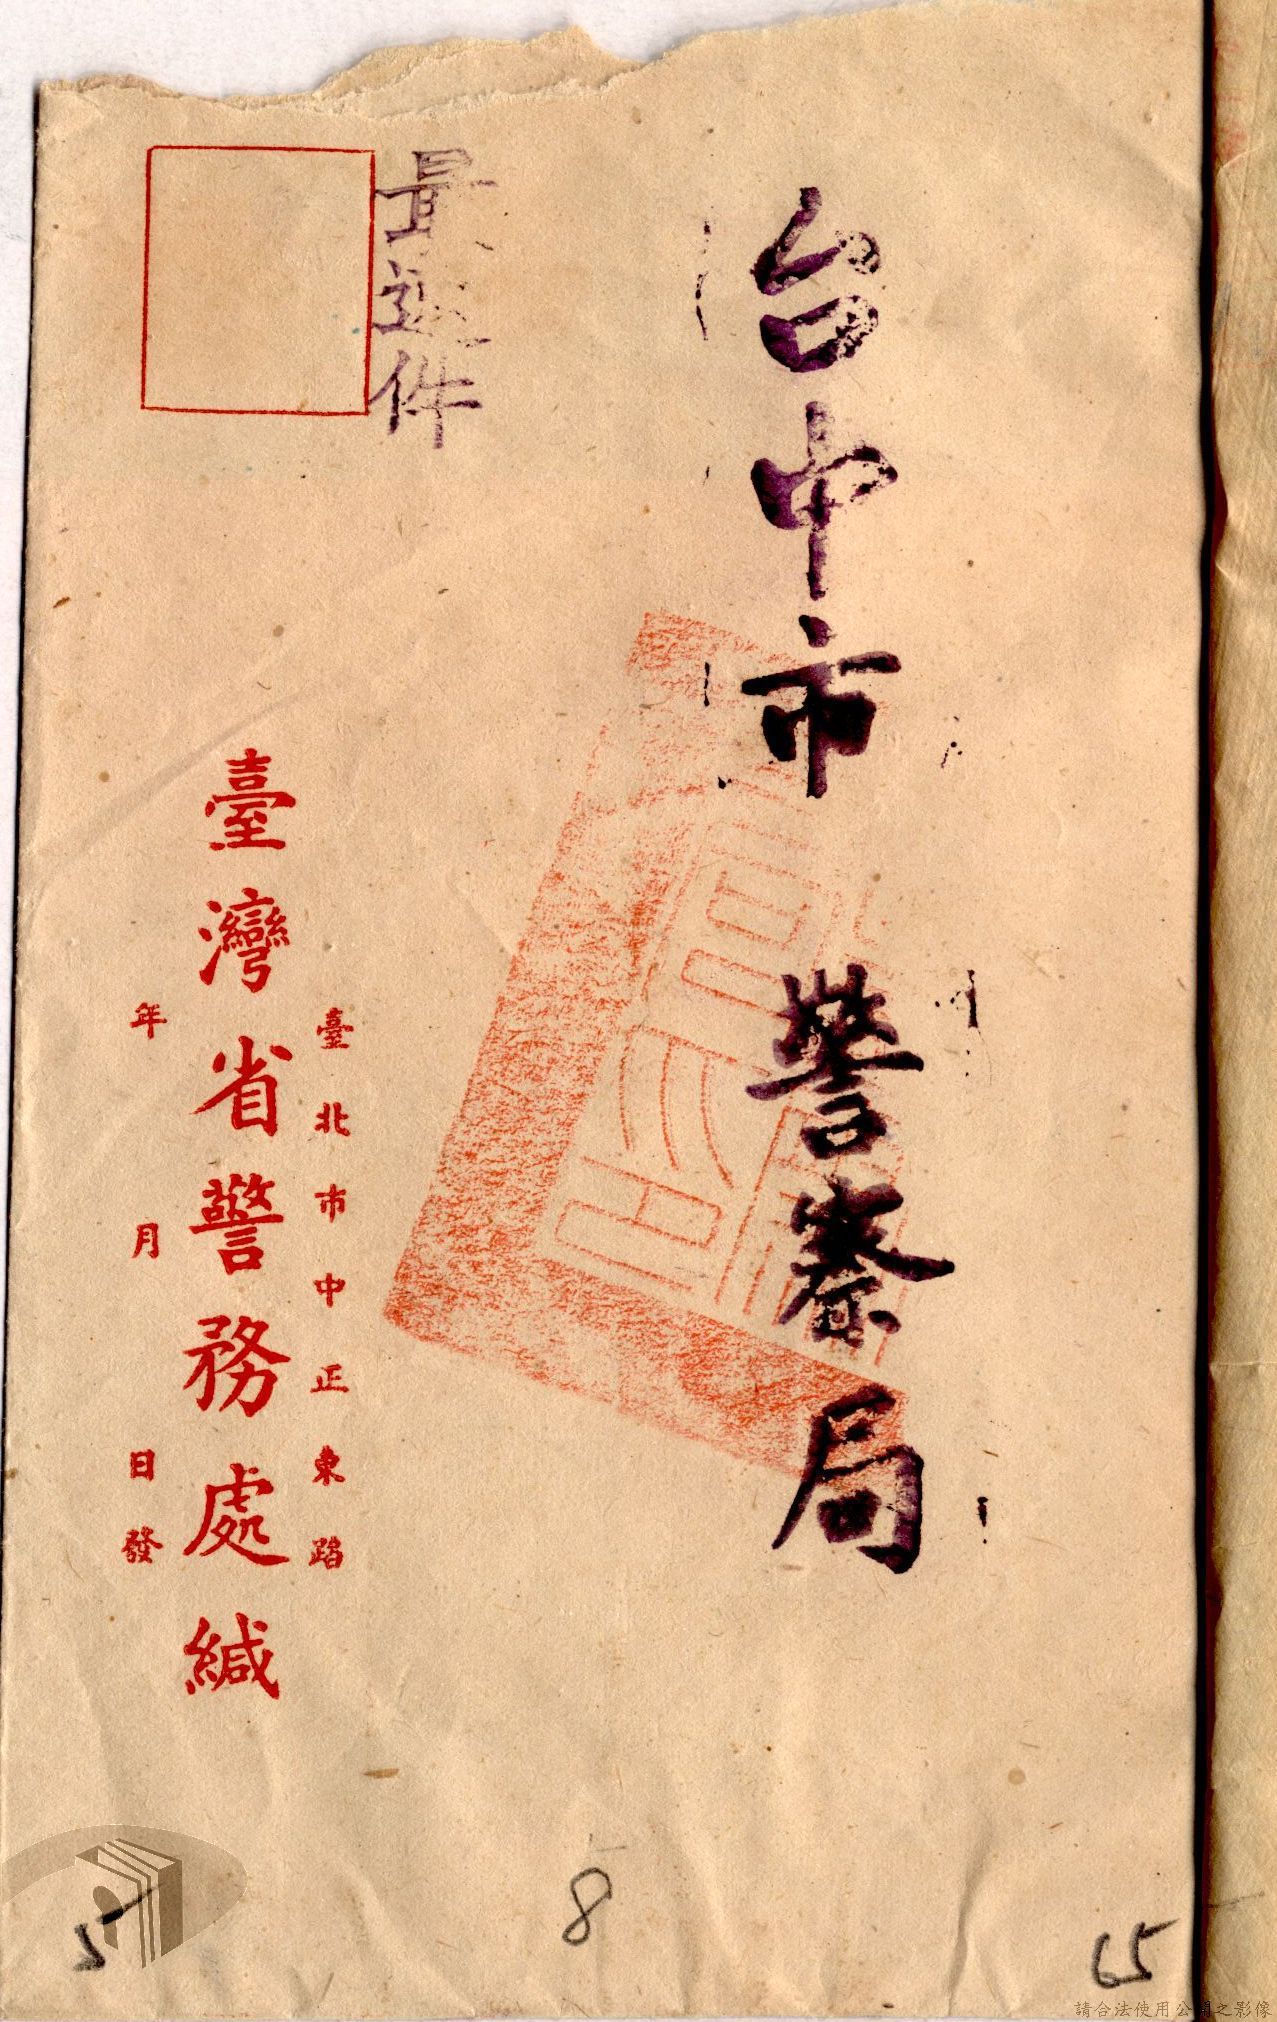 台中市警察局
最速件
臺北市中正東路
臺灣省警務處緘
年月日發
5
8
65
請合法使用公開之影像